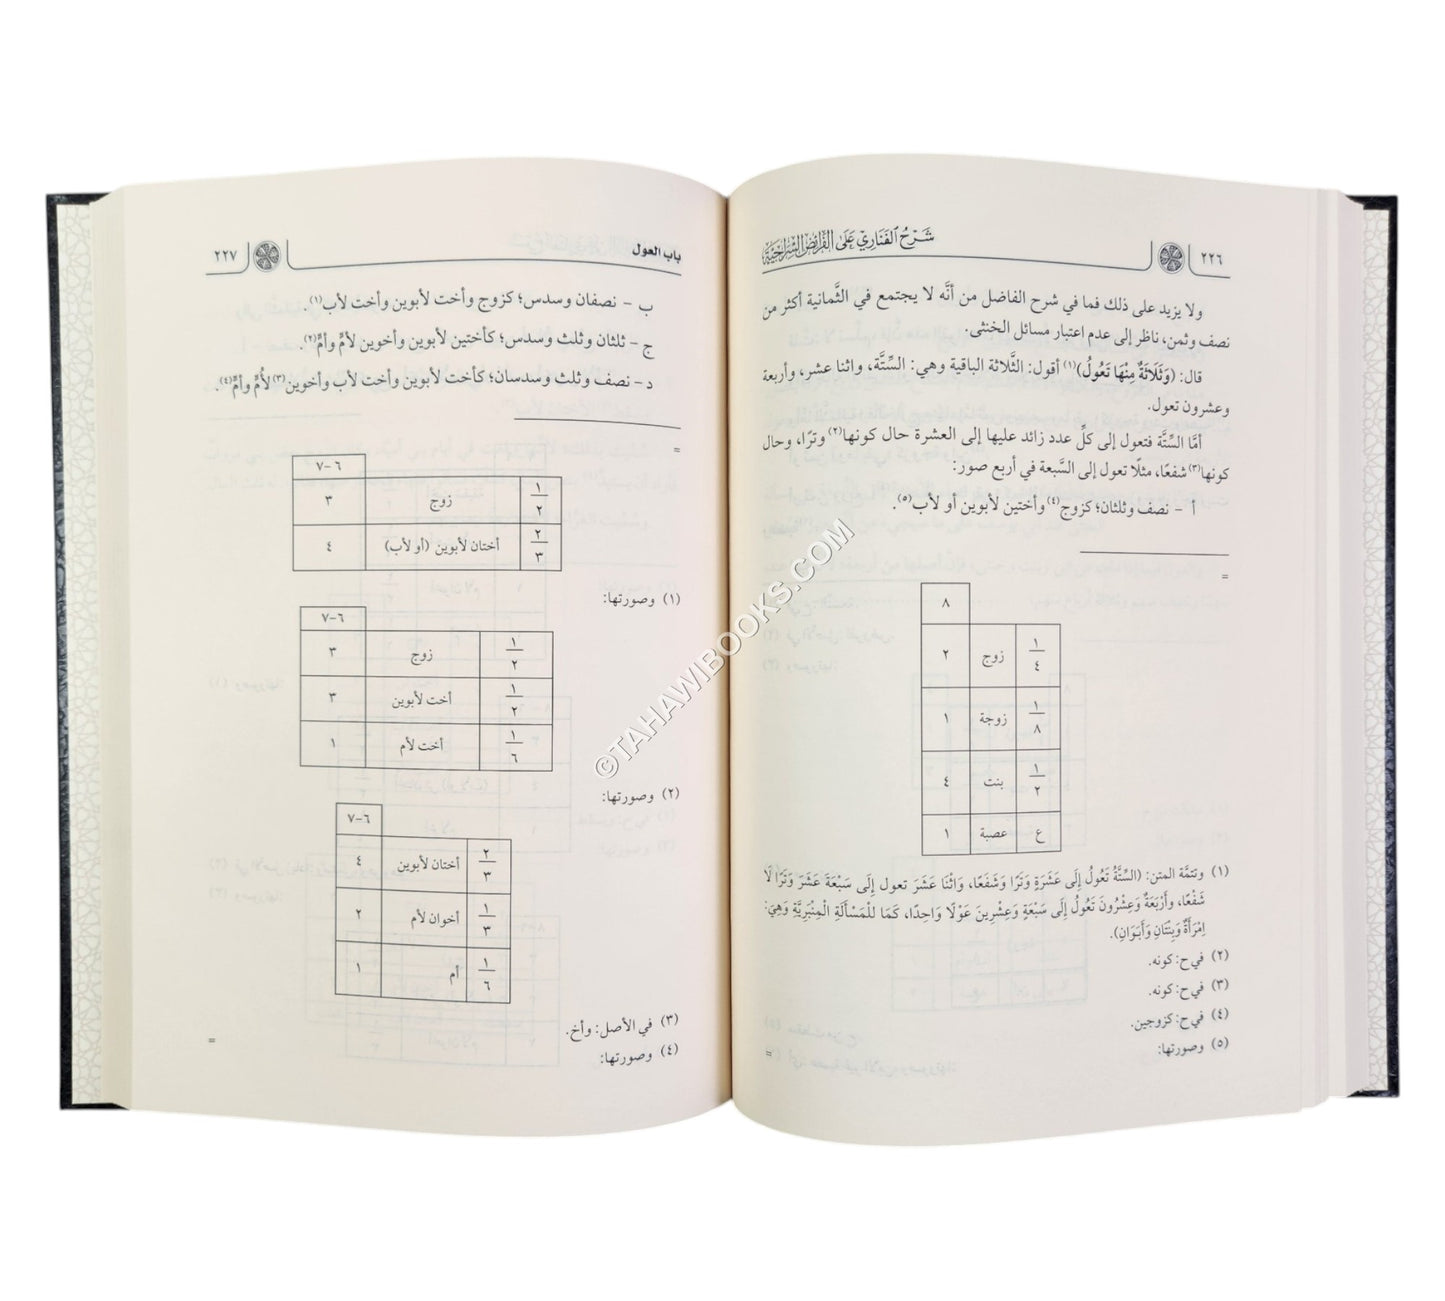 ٢٢٦
شَرْحُ الفَنَارِي عَلَى الفَرَائِضِ السِّرَاجِيَّة
ولا يزيد على ذلك فما في شرح الفاضل من أنَّه لا يجتمع في الثَّمانية أكثر من
نصف وثمن، ناظر إلى عدم اعتبار مسائل الخنثى.
قال: (وَثَلَاثَةٌ مِنْهَا تَعُولُ)(١) أقول: الثَّلاثة الباقية وهي: الستَّة، واثنا عشر، وأربعة
وعشرون تعول.
أمَّا الستَّة فتعول إلى كلِّ عدد زائد عليها إلى العشرة حال كونها(٢) وترًا، وحال
كونها(٣) شفعًا، مثلًا تعول إلى السَّبعة في أربع صور:
أ - نصف وثلثان؛ كزوج(٤) وأختين لأبوين أو لأب(٥).
=
٨
١/٤ زوج ٢
١/٨ زوجة ١
١/٢ بنت ٤
ع عصبة ١
(١) وتتمَّة المتن: (السِّتَّةُ تَعُولُ إِلَى عَشَرَةٍ وَتَرًا وَشَفْعًا، وَاثْنَا عَشَرَ تعول إِلَى سَبْعَةَ عَشَرَ وَتَرًا لَا
شَفْعًا، وَأَرْبَعَةٌ وَعِشْرُونَ تَعُولُ إِلَى سَبْعَةٍ وَعِشْرِينَ عَوْلًا وَاحِدًا، كَمَا لِلْمَسْأَلَةِ الْمِنْبَرِيَّةِ وَهِيَ:
اِمْرَأَةٌ وَبِنْتَانِ وَأَبَوَانِ).
(٢) في ح: كونه.
(٣) في ح: كونه.
(٤) في ح: كزوجين.
(٥) وصورتها:
=
باب العول
٢٢٧
ب - نصفان وسدس؛ كزوج وأخت لأبوين وأخت لأب(١).
ج - ثلثان وثلث وسدس؛ كأختين لأبوين وأخوين لأمٍّ وأمٍّ(٢).
د - نصف وثلث وسدسان؛ كأخت لأبوين وأخت لأب وأخوين(٣) لأُمٍّ وأمٍّ(٤).
=
٦-٧
١/٢ زوج ٣
٢/٣ أختان لأبوين (أو لأب) ٤
(١) وصورتها:
٦-٧
١/٢ زوج ٣
١/٢ أخت لأبوين ٣
١/٦ أخت لأم ١
(٢) وصورتها:
٦-٧
٢/٣ أختان لأبوين ٤
١/٣ أخوان لأم ٢
١/٦ أم ١
(٣) في الأصل: وأخ.
(٤) وصورتها:
=
©TAHAWIBOOKS.COM